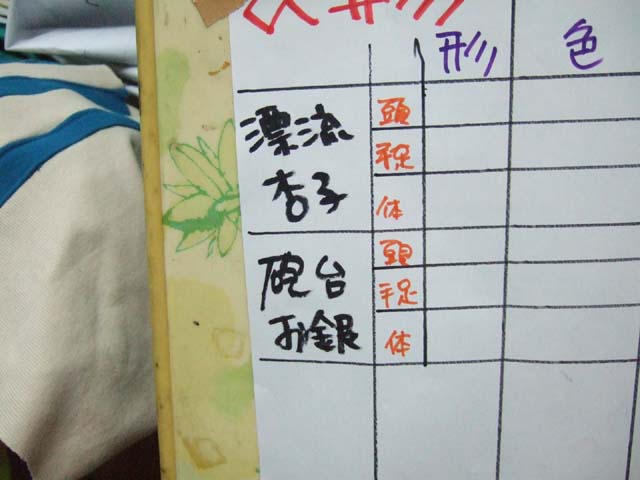 形 色
漂流
杏子
頭
手足
体
砲台
お銀
頭
手足
体